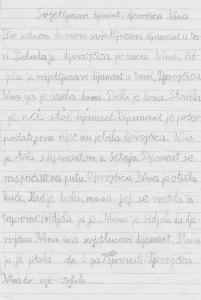 Svjetlucavi dijamant i djevojčica Nina
Bio jednom jednom svjetlucavi dijamant u tra
vi. Pojavila je djevojčica po imenu Nina. Vid-
jela je svjetlucavi dijamant u travi. Djevojčica
Nina ga je uzela doma. Došla je doma. Stavila
je na stol dijamant. Dijamant je počeo
pričati prvo riječ mu je bila djevojčica. Nina
je otišla s dijamantom u šetnju. Dijamant se
raspričao na putu. Djevojčica Nina je otišla
kući. Kad je došla, mama joj se vratila iz
trgovine, vidjela ju je. Mama je vidjela da dje-
vojčica Nina ima svjetlucavi dijamant. Mama
ju je pitala da li ga može spremiti. Djevojčica
Nina to nije željela....